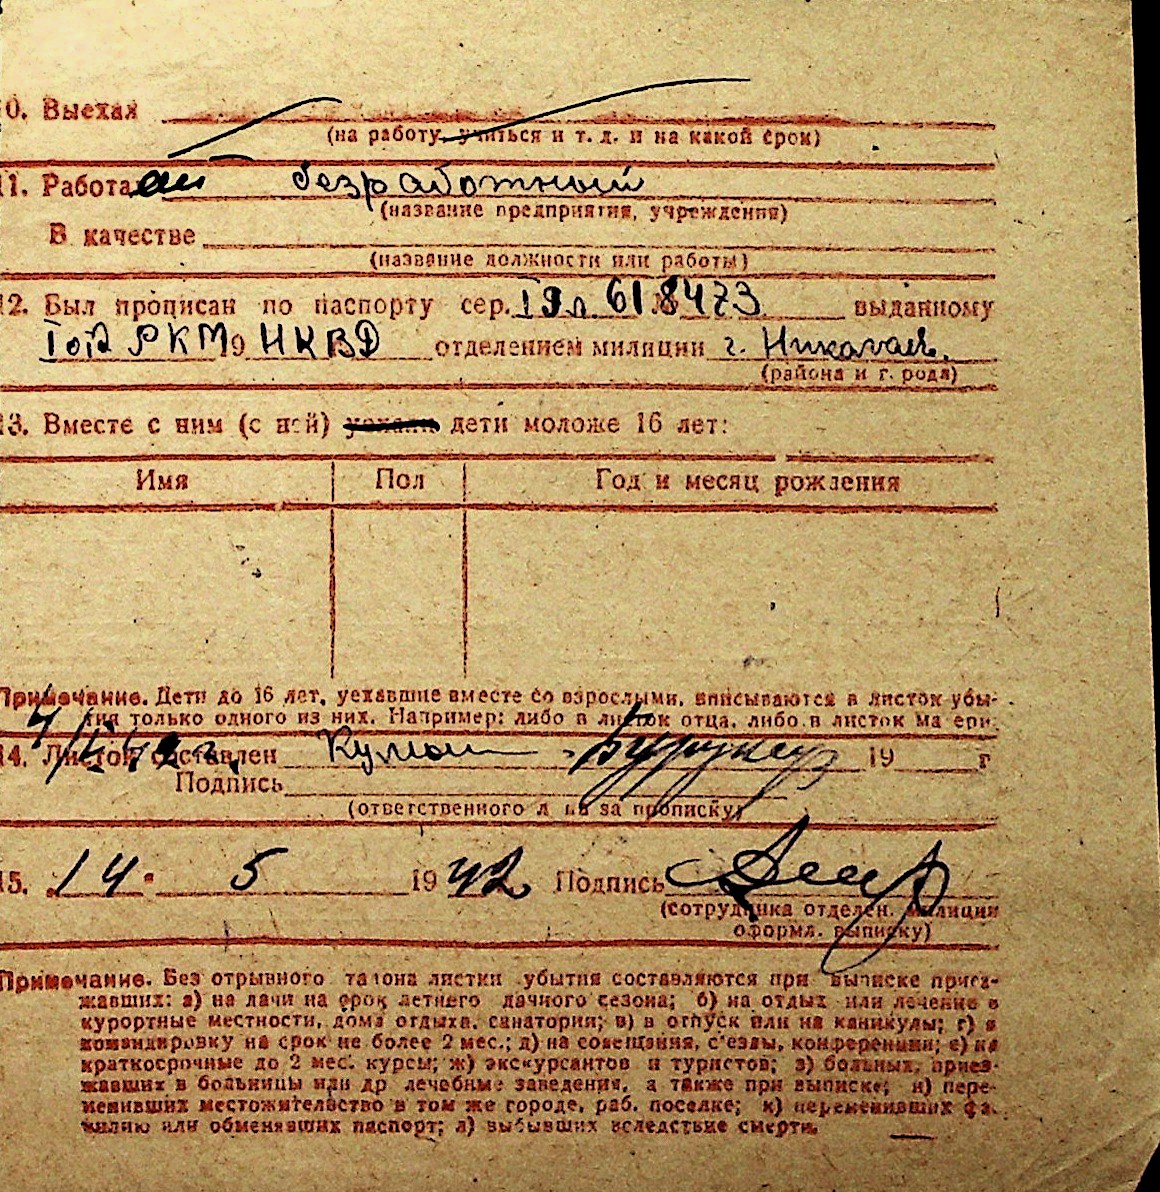 10. Выехал
(на работу, учиться и т. д. и на какой срок)
11. Работает безработный
(название предприятия, учреждения)
В качестве
(название должности или работы)
12. Был прописан по паспорту сер. № 618473 выданному
РКМ НКВД отделением милиции г. Николаев.
(района и города)
13. Вместе с ним (с ней) уехали дети моложе 16 лет:
Имя Пол Год и месяц рождения
Примечание. Дети до 16 лет, уехавшие вместе со взрослыми, вписываются в листок убы-
тия только одного из них. Например: либо в листок отца, либо в листок матери.
14. Листок составлен 19 г
Подпись
(ответственного лица за прописку)
15. 14 5 1942 Подпись
(сотрудника отделен. милиции
оформл. выписку)
Примечание. Без отрывного талона листки убытия составляются при выписке приез-
жавших: а) на дачи на срок летнего дачного сезона; б) на отдых или лечение в
курортные местности, дома отдыха, санатории; в) в отпуск или на каникулы; г) в
командировку на срок не более 2 мес.; д) на совещания, с'езды, конференции; е) на
краткосрочные до 2 мес. курсы; ж) экскурсантов и туристов; з) больных, приез-
жавших в больницы или др лечебные заведения, а также при выписке; и) пере-
менивших местожительство в том же городе, раб. поселке; к) переменивших фа-
милию или обменявших паспорт; л) выбывших вследствие смерти.